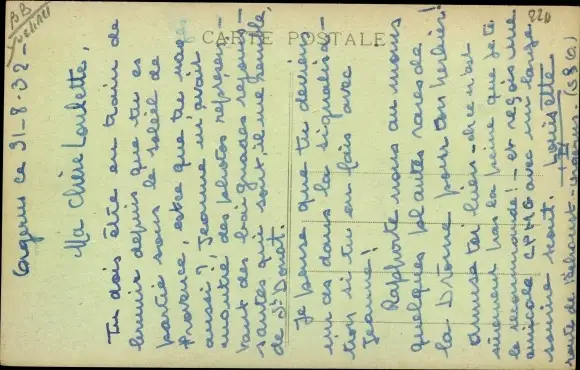 CARTE POSTALE
220
BB
ce 31-8-32-
Ma chère Loulette,
Tu dois être en train de
brunir depuis que tu es
partie sous le soleil de
Provence, est-ce que tu nages
aussi? Jeanne m'avait
montré des photos représen-
tant des baignades rejouis-
santes qui sont, il me semble,
de St Donat.
Je pense que tu deviens
dans la signalisa-
tion si tu en fais avec
Jeanne!
Rapporte nous au moins
quelques plantes rares de
la Drôme pour ton herbier!
Amuse toi bien - ce n'est
sûrement pas la peine que je te
le recommande! - et reçois une
amicale CPMG avec un large
sourire scout. Louisette
route de
(S&O)